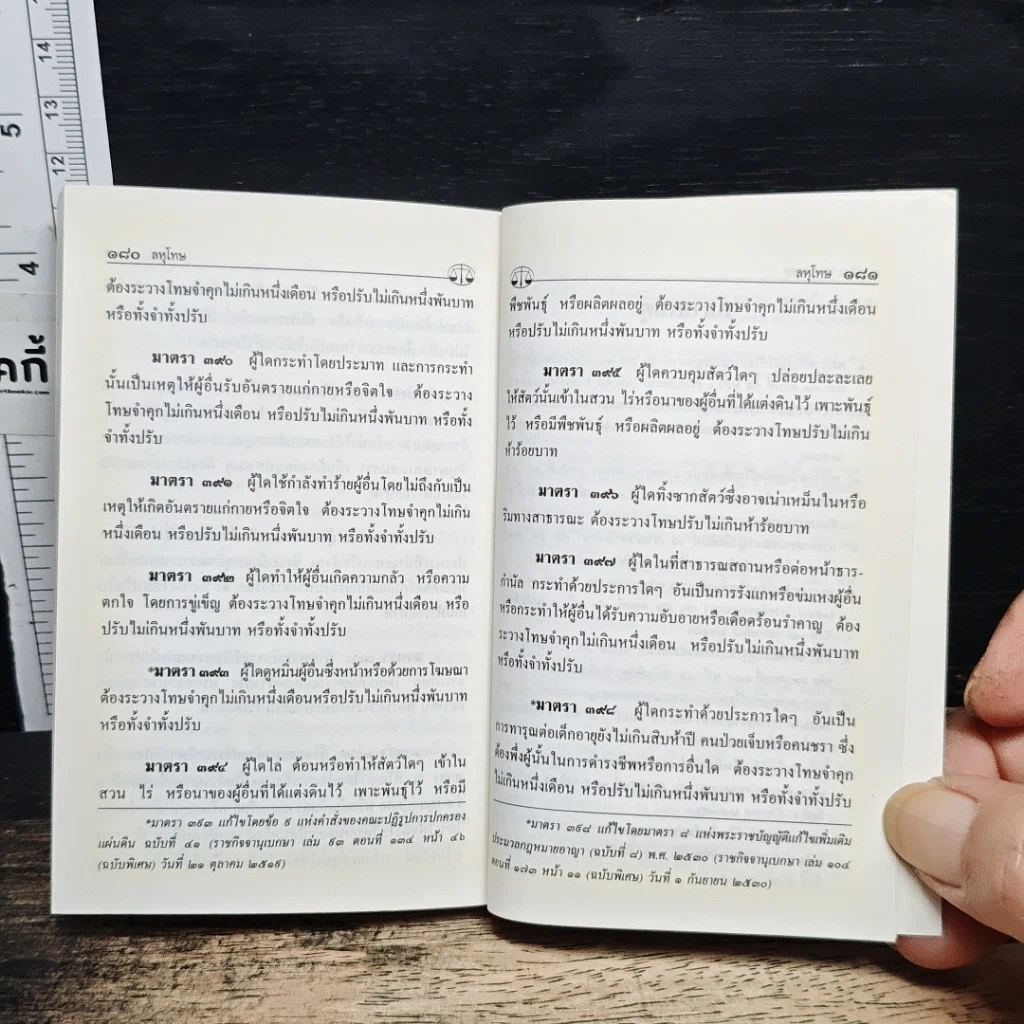 14
13
12
5
4
คกี้
๑๘๐ ลหุโทษ
ต้องระวางโทษจำคุกไม่เกินหนึ่งเดือน หรือปรับไม่เกินหนึ่งพันบาท
หรือทั้งจำทั้งปรับ
มาตรา ๓๙๐ ผู้ใดกระทำโดยประมาท และการกระทำ
นั้นเป็นเหตุให้ผู้อื่นรับอันตรายแก่กายหรือจิตใจ ต้องระวาง
โทษจำคุกไม่เกินหนึ่งเดือน หรือปรับไม่เกินหนึ่งพันบาท หรือทั้ง
จำทั้งปรับ
มาตรา ๓๙๑ ผู้ใดใช้กำลังทำร้ายผู้อื่นโดยไม่ถึงกับเป็น
เหตุให้เกิดอันตรายแก่กายหรือจิตใจ ต้องระวางโทษจำคุกไม่เกิน
หนึ่งเดือน หรือปรับไม่เกินหนึ่งพันบาท หรือทั้งจำทั้งปรับ
มาตรา ๓๙๒ ผู้ใดทำให้ผู้อื่นเกิดความกลัว หรือความ
ตกใจ โดยการขู่เข็ญ ต้องระวางโทษจำคุกไม่เกินหนึ่งเดือน หรือ
ปรับไม่เกินหนึ่งพันบาท หรือทั้งจำทั้งปรับ
*มาตรา ๓๙๓ ผู้ใดดูหมิ่นผู้อื่นซึ่งหน้าหรือด้วยการโฆษณา
ต้องระวางโทษจำคุกไม่เกินหนึ่งเดือนหรือปรับไม่เกินหนึ่งพันบาท
หรือทั้งจำทั้งปรับ
มาตรา ๓๙๔ ผู้ใดไล่ ต้อนหรือทำให้สัตว์ใดๆ เข้าใน
สวน ไร่ หรือนาของผู้อื่นที่ได้แต่งดินไว้ เพาะพันธุ์ไว้ หรือมี
*มาตรา ๓๙๓ แก้ไขโดยข้อ ๙ แห่งคำสั่งของคณะปฏิรูปการปกครอง
แผ่นดิน ฉบับที่ ๔๑ (ราชกิจจานุเบกษา เล่ม ๙๓ ตอนที่ ๑๓๔ หน้า ๔๖
(ฉบับพิเศษ) วันที่ ๒๑ ตุลาคม ๒๕๑๙)
ลหุโทษ ๑๘๑
พืชพันธุ์ หรือผลิตผลอยู่ ต้องระวางโทษจำคุกไม่เกินหนึ่งเดือน
หรือปรับไม่เกินหนึ่งพันบาท หรือทั้งจำทั้งปรับ
มาตรา ๓๙๕ ผู้ใดควบคุมสัตว์ใดๆ ปล่อยปละละเลย
ให้สัตว์นั้นเข้าในสวน ไร่หรือนาของผู้อื่นที่ได้แต่งดินไว้ เพาะพันธุ์
ไว้ หรือมีพืชพันธุ์ หรือผลิตผลอยู่ ต้องระวางโทษปรับไม่เกิน
ห้าร้อยบาท
มาตรา ๓๙๖ ผู้ใดทิ้งซากสัตว์ซึ่งอาจเน่าเหม็นในหรือ
ริมทางสาธารณะ ต้องระวางโทษปรับไม่เกินห้าร้อยบาท
มาตรา ๓๙๗ ผู้ใดในที่สาธารณสถานหรือต่อหน้าธาร-
กำนัล กระทำด้วยประการใดๆ อันเป็นการรังแกหรือข่มเหงผู้อื่น
หรือกระทำให้ผู้อื่นได้รับความอับอายหรือเดือดร้อนรำคาญ ต้อง
ระวางโทษจำคุกไม่เกินหนึ่งเดือน หรือปรับไม่เกินหนึ่งพันบาท
หรือทั้งจำทั้งปรับ
*มาตรา ๓๙๘ ผู้ใดกระทำด้วยประการใดๆ อันเป็น
การทารุณต่อเด็กอายุยังไม่เกินสิบห้าปี คนป่วยเจ็บหรือคนชรา ซึ่ง
ต้องพึ่งผู้นั้นในการดำรงชีพหรือการอื่นใด ต้องระวางโทษจำคุก
ไม่เกินหนึ่งเดือน หรือปรับไม่เกินหนึ่งพันบาท หรือทั้งจำทั้งปรับ
*มาตรา ๓๙๘ แก้ไขโดยมาตรา ๘ แห่งพระราชบัญญัติแก้ไขเพิ่มเติม
ประมวลกฎหมายอาญา (ฉบับที่ ๘) พ.ศ. ๒๕๓๐ (ราชกิจจานุเบกษา เล่ม ๑๐๔
ตอนที่ ๑๗๓ หน้า ๑๑ (ฉบับพิเศษ) วันที่ ๑ กันยายน ๒๕๓๐)